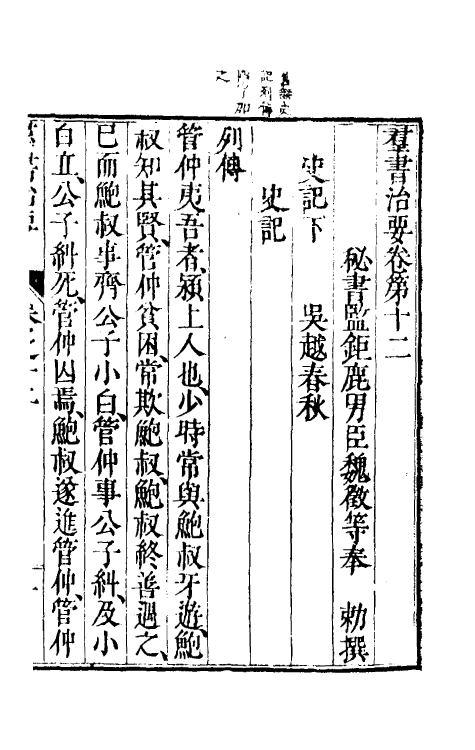 舊無史
記列傳
四字加
之
羣書治要卷第十二
秘書監鉅鹿男臣魏徵等奉　勅撰
史記下　吳越春秋
史記
列傳
管仲夷吾者、潁上人也、少時常與鮑叔牙遊、鮑
叔知其賢、管仲貧困、常欺鮑叔、鮑叔終善遇之、
已而鮑叔事齊公子小白、管仲事公子糾、及小
白立、公子糾死、管仲囚焉、鮑叔遂進管仲、管仲
卷之十二